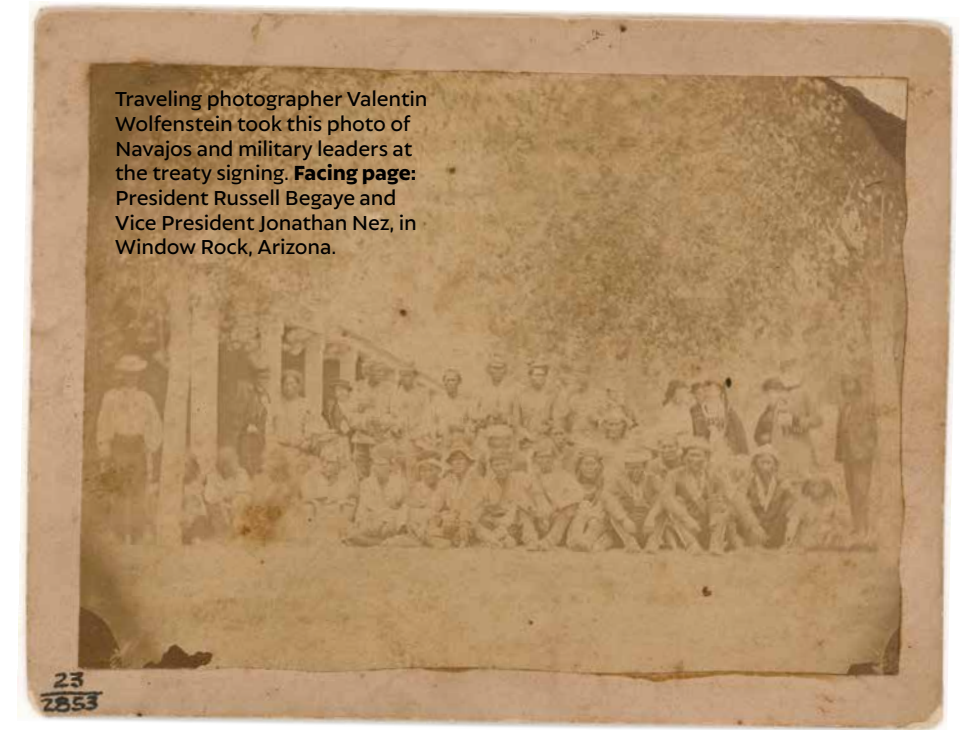 Traveling photographer Valentin
Wolfenstein took this photo of
Navajos and military leaders at
the treaty signing. Facing page:
President Russell Begaye and
Vice President Jonathan Nez, in
Window Rock, Arizona.
23
2853